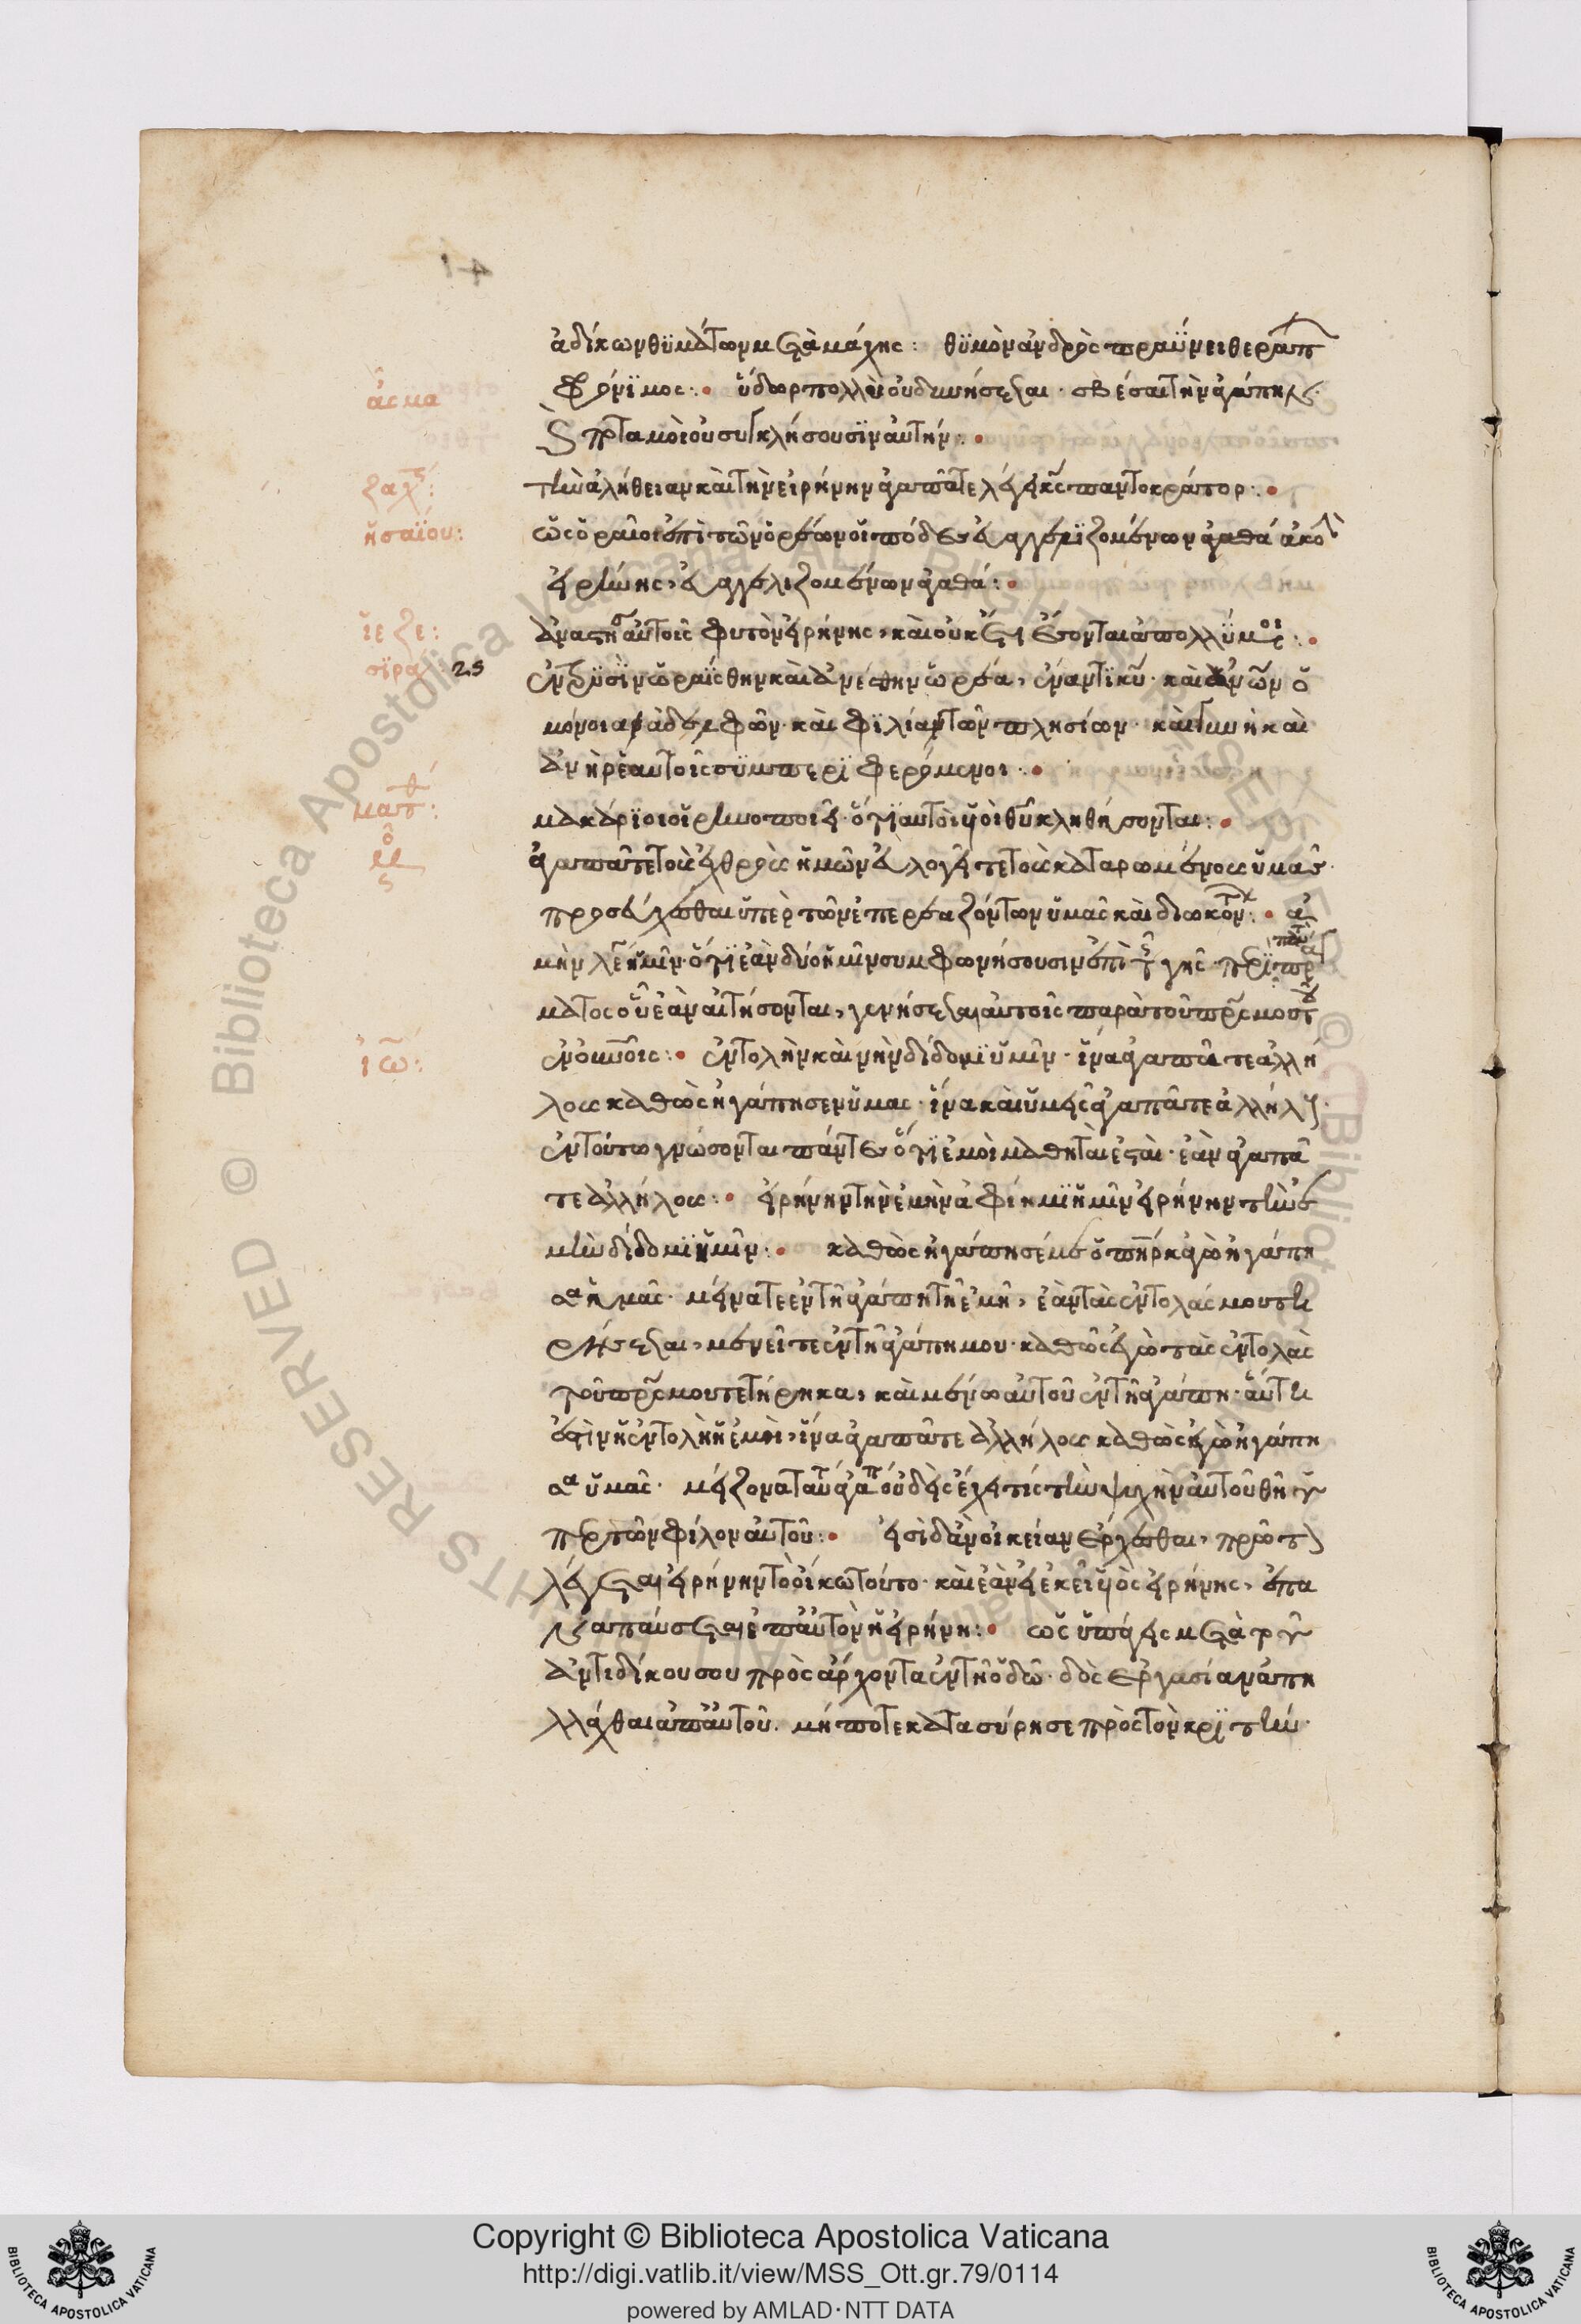 ἀδίκων θϋμάτων μετὰ μάχης: θϋμὸν ἀνδρὸς πραΰνει θεράπ
φρόνϊμος: ὕδωρ πολλὺ οὐ δυνήσεται· σβέσαι τὴν ἀγάπην·
ἄσμα
ποταμοὶ οὐ συγκλήσουσϊν αὐτήν:
ζαχ:
τὴν ἀλήθειαν καὶ τὴν εἰρήνην ἀγαπᾶτε λέγει κς παντοκράτορ:
ἡσαΐου:
ὡς ὁραῖοι ἐπὶ τῶν ὀρέων οἱ πόδες εὐαγγελϊζομένων ἀγαθά ἀκο
εἰρήνης, εὐαγγελιζομένων ἀγαθά:
ἰεζε:
ἀναστήσ αὐτοῖς φυτὸν εἰρήνης, καὶ οὐκέτι ἔσονται ἀπολλϋμοι:
σϊραχ: 25
ἐν τρϋσὶν ὡραΐσθην καὶ ἀνέστην ὡρέα, ἐναντϊ κυ· καὶ ἀνων ὁ
μόνοια ἀδελφῶν· καὶ φϊλία τῶν πλησίων· καὶ γυνὴ καὶ
ἀνὴρ ἑαυτοῖς σϋμπερϊφερόμενοι:
ματθ:
μακάρϊοι οἱ εἰρηνοποιεί· ὅτϊ αὐτοὶ ὑοὶ θυ κληθήσονται:
ἀγαπᾶτε τοὺς ἐχθροὺς ἡμῶν εὐλογεῖτε τοὺς καταρωμένους ὑμᾶς·
προσεύχεσθαι ὑπὲρ τῶν ἐπερεαζόντων ὑμᾶς καὶ διωκόντ: ἀ
μὴν λέγ ἡμῖν· ὅτϊ ἐὰν δύο ἡμῖν συμφωνήσουσιν ἐπὶ τ γῆς· περϊ παντ πρα
ματος οὗ ἐὰν αἰτήσονται, γενήσεται αὐτοῖς παρὰ τοῦ πρς μου τ
ἐν οὐνοῖς: ἐντολὴν καινὴν δίδομϊ ὑμῖν· ἵνα ἀγαπᾶτε ἀλλή
ἰω:
λους καθὼς ἠγάπησεν ὑμας· ἵνα καὶ ὑμεῖς ἀγαπᾶτε ἀλλήλους·
ἐν τούτω γνώσονται πάντες ὅτϊ ἐμοὶ μαθηταὶ ἐσταὶ· ἐὰν ἀγαπᾶ
τε ἀλλήλους: εἰρήνην τὴν ἐμὴν ἀφίημϊ ἡμῖν εἰρήνην τὴν ἐ
μὴν δίδομϊ ἡμῖν: καθὼς ἠγάπησέ με ὁ πηρ κἀγὼ ἠγάπη
σα ἡμᾶς· μείνατε ἐν τῆ ἀγάπη τῆ ἐμῆ, ἐὰν τὰς ἐντολάς μου τη
ρήσεται, μενεῖτε ἐν τῆ ἀγάπη μου· καθὼς ἐγὼ τὰς ἐντολὰς
τοῦ πρς μου τετήρηκα, καὶ μένω αὐτοῦ ἐν τῆ ἀγάπη· αὕτη
ἐστὶν ἡ ἐντολὴ ἡ ἐμὴ, ἵνα ἀγαπᾶτε ἀλλήλους καθὼς ἐγὼ ἠγάπη
σα ὑμᾶς· μείζονα ταύτ ἀγάπ οὐδεὶς ἔχει τίς τὴν ψυχὴν αὐτοῦ θῆ ὑ
πὲρ τῶν φίλον αὐτοῦ: εἰσὶ δ' ἂν οἰκείαν ἔρχεσθαι, πρῶτον
λέγεται εἰρήνην τὸ οἴκω τούτο· καὶ ἐὰν εἶ ἐκεῖ ὑὸς εἰρήνης, ἐπα
ναπαύσεται ἐπ' αὐτὸν ἡ εἰρήνη: ὡς ὑπάγεις μετὰ τοῦ
ἀντιδίκου σου πρὸς ἄρχοντα ἐν τῆ ὁδῶ· δὸς ἐργασίαν ἀπη
λλάχθαι ἀπ' αὐτοῦ. μή ποτε κατασύρησε πρὸς τὸν κρϊτήν·
Copyright © Biblioteca Apostolica Vaticana
http://digi.vatlib.it/view/MSS_Ott.gr.79/0114
powered by AMLAD·NTT DATA